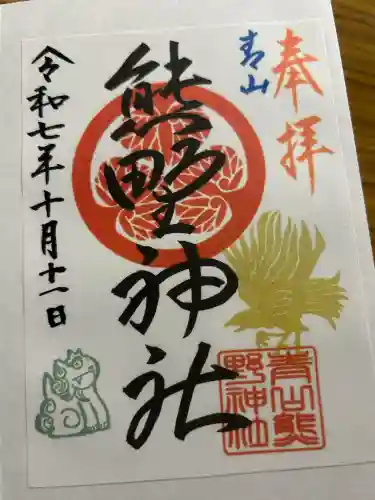 奉拝
青山
熊野神社
令和七年十月十一日
青山熊
野神社